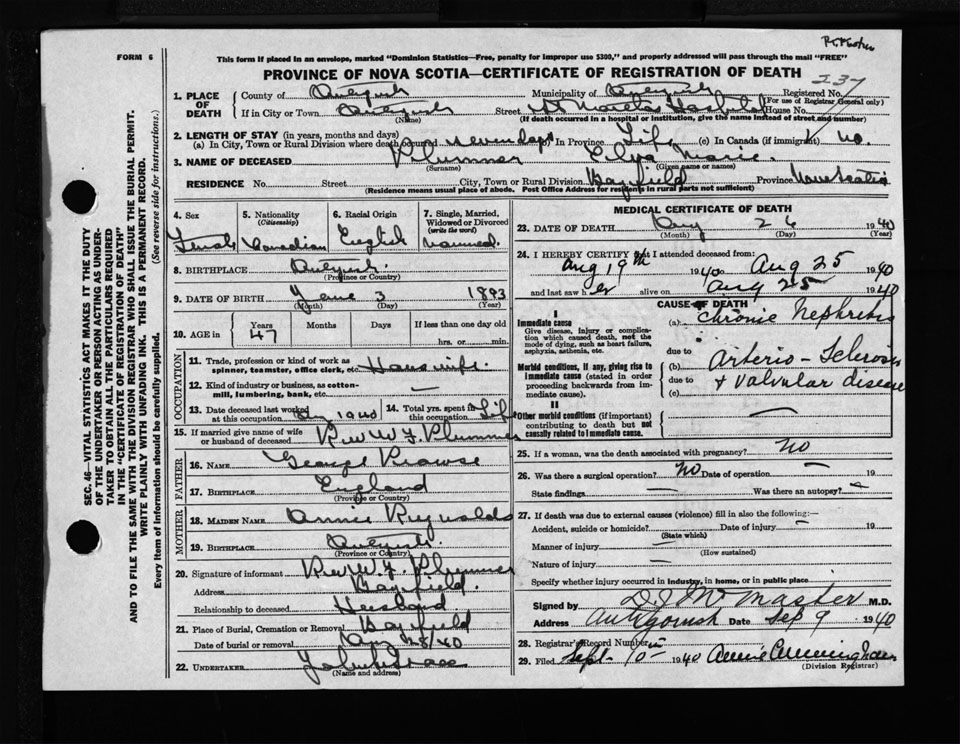 FORM 6
This form if placed in an envelope, marked "Dominion Statistics—Free, penalty for improper use $300," and properly addressed will pass through the mail "FREE"
PROVINCE OF NOVA SCOTIA—CERTIFICATE OF REGISTRATION OF DEATH
237
1. PLACE OF DEATH County of Municipality of Registered No.
(For use of Registrar General only)
If in City or Town Street St Martha's Hospital House No.
(Name) (If death occurred in a hospital or institution, give the name instead of street and number)
2. LENGTH OF STAY (in years, months and days)
(a) In City, Town or Rural Division where death occurred seven days In Province Life (c) In Canada (if immigrant) no.
3. NAME OF DECEASED Plummer Marie.
(Surname) (Given name or names)
RESIDENCE No. Street City, Town or Rural Division Bayfield Province Nova Scotia
(Residence means usual place of abode. Post Office Address for residents in rural parts not sufficient)
4. Sex Female
5. Nationality (Citizenship) Canadian
6. Racial Origin English
7. Single, Married, Widowed or Divorced (write the word) married.
8. BIRTHPLACE
(Province or Country)
9. DATE OF BIRTH 3 1893
(Month) (Day) (Year)
10. AGE in Years Months Days If less than one day old
47 hrs. or min.
OCCUPATION
11. Trade, profession or kind of work as spinner, teamster, office clerk, etc. Housewife.
12. Kind of industry or business, as cotton-mill, lumbering, bank, etc. —
13. Date deceased last worked at this occupation 1940
14. Total yrs. spent in this occupation Life
15. If married give name of wife or husband of deceased Rev W. J. Plummer
FATHER
16. NAME George
17. BIRTHPLACE England
(Province or Country)
MOTHER
18. MAIDEN NAME Annie Reynolds
19. BIRTHPLACE
(Province or Country)
20. Signature of informant Rev W. J. Plummer
Address Bayfield
Relationship to deceased Husband
21. Place of Burial, Cremation or Removal Bayfield
Date of burial or removal Aug 28/40
22. UNDERTAKER
(Name and address)
MEDICAL CERTIFICATE OF DEATH
23. DATE OF DEATH Aug 26 1940
(Month) (Day) (Year)
24. I HEREBY CERTIFY that I attended deceased from:
Aug 19th 1940 to Aug 25 1940
and last saw her alive on Aug 25 1940
CAUSE OF DEATH
I
Immediate cause
Give disease, injury or complication which caused death, not the mode of dying, such as heart failure, asphyxia, asthenia, etc.
(a) Chronic Nephritis
due to
Morbid conditions, if any, giving rise to immediate cause (stated in order proceeding backwards from immediate cause).
(b) Arterio-Sclerosis
due to + Valvular disease
(c)
II
Other morbid conditions (if important) contributing to death but not causally related to immediate cause. —
25. If a woman, was the death associated with pregnancy? no
26. Was there a surgical operation? no Date of operation — 19
State findings — Was there an autopsy? —
27. If death was due to external causes (violence) fill in also the following:—
Accident, suicide or homicide? Date of injury — 19
(State which)
Manner of injury —
(How sustained)
Nature of injury —
Specify whether injury occurred in industry, in home, or in public place
Signed by McMaster M.D.
Address Antigonish Date Sep 9 1940
28. Registrar's Record Number
29. Filed Sept. 10th 1940 Annie Cunningham
(Division Registrar)
SEC. 46—VITAL STATISTICS ACT MAKES IT THE DUTY
OF THE UNDERTAKER OR PERSON ACTING AS UNDER-
TAKER TO OBTAIN ALL THE PARTICULARS REQUIRED
IN THE "CERTIFICATE OF REGISTRATION OF DEATH"
AND TO FILE THE SAME WITH THE DIVISION REGISTRAR WHO SHALL ISSUE THE BURIAL PERMIT.
WRITE PLAINLY WITH UNFADING INK. THIS IS A PERMANENT RECORD.
Every item of information should be carefully supplied. (See reverse side for instructions.)